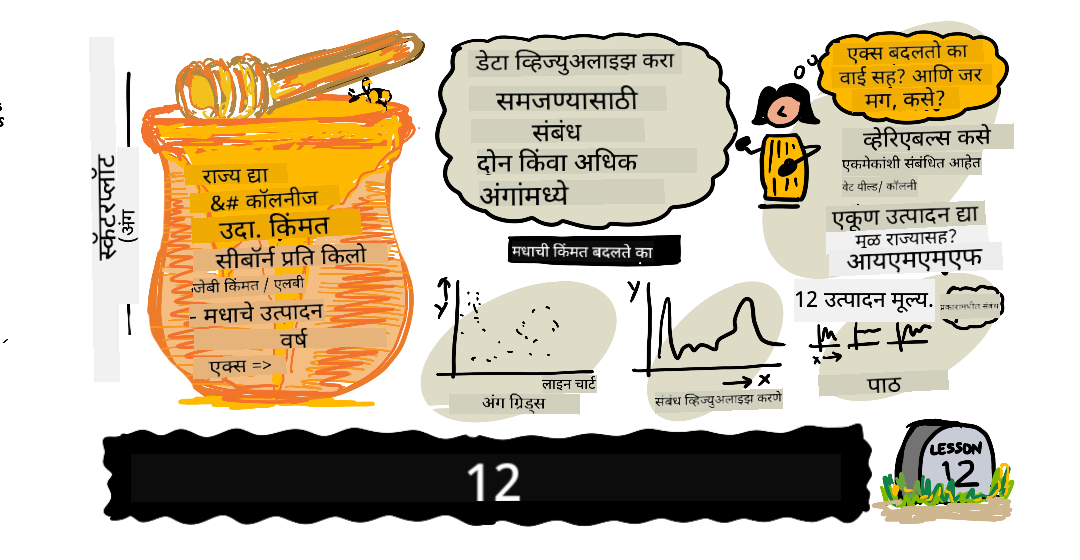 स्कॅटरप्लॉट
(अंग
राज्य द्या
&# कॉलनीज
उदा. किंमत
सीबॉर्न प्रति किलो
जेबी किंमत / एलबी
- मधाचे उत्पादन
वर्ष
एक्स =>
डेटा व्हिज्युअलाइझ करा
समजण्यासाठी
संबंध
दोन किंवा अधिक
अंगांमध्ये
मधाची किंमत बदलते का
Y
लाइन चार्ट
अंग ग्रिड्स
Y
x
संबंध व्हिज्युअलाइझ करणे
एक्स बदलतो का
वाई सह? आणि जर
मग, कसे?
व्हेरिएबल्स कसे
एकमेकांशी संबंधित आहेत
वेट यील्ड/ कॉलनी
एकूण उत्पादन द्या
मूळ राज्यासह?
आयएमएमएफ
12 उत्पादन मूल्य.
x
पाठ
12
LESSON
12